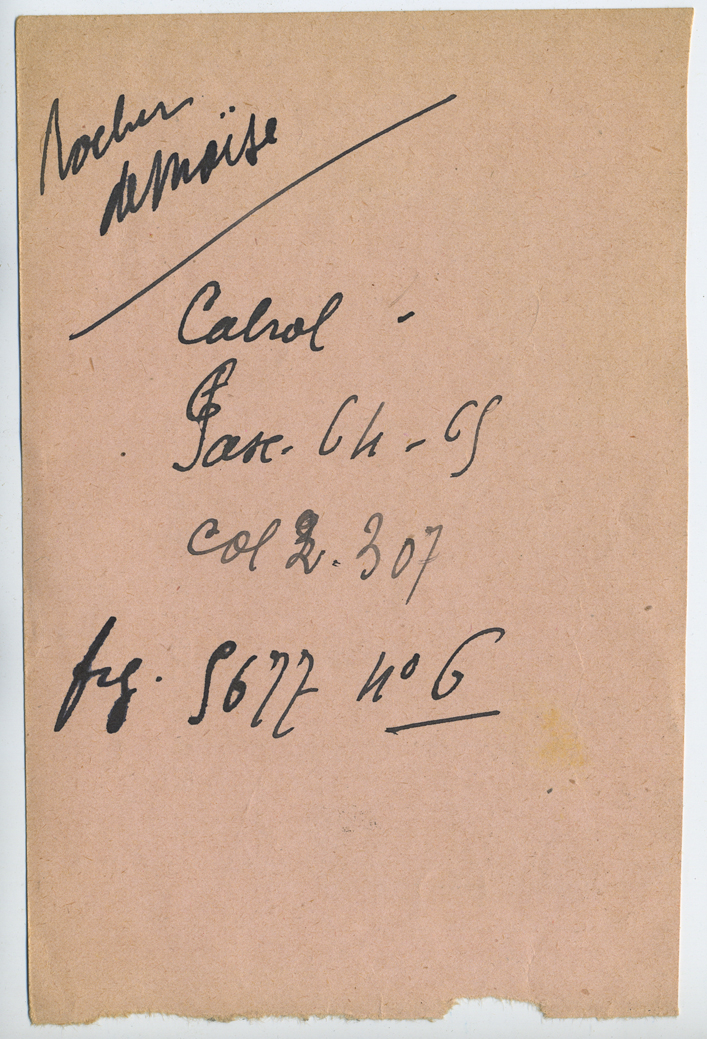 Rocher
de Moïse
Cabrol -
Fasc. 64-65
col 2. 307
fig. 5677 nº 6